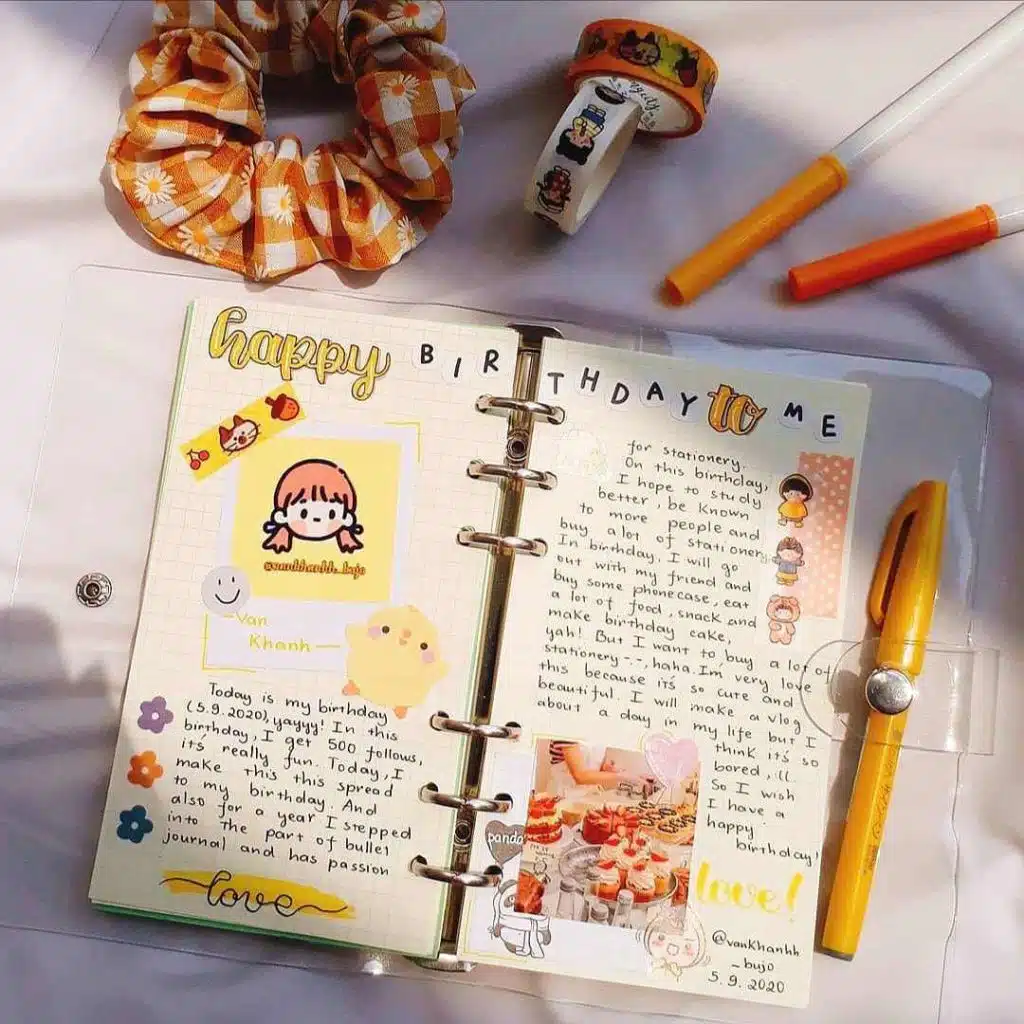 happy BIRTHDAY to ME
@vankhanhh_bujo
-Van
Khanh-
Today is my birthday
(5.9.2020), yayyy! In this
birthday, I get 500 follows,
it's really fun. Today, I
make this this spread
to my birthday. And
also for a year I stepped
into the part of bullet
journal and has passion
love
for stationery.
On this birthday,
I hope to study
better, be known
to more people and
buy a lot of stationery
In birthday, I will go
out with my friend and
buy some phonecase, eat
a lot of food, snack and
make birthday cake,
yah! But I want to buy a lot of
stationery -.-, haha. I'm very love
this because it's so cute and
beautiful. I will make a vlog
about a day in my life but I
think it's so
bored, :((
So I wish
I have a
happy
birthday!
panda
love!
@vankhanhh
_bujo
5.9.2020